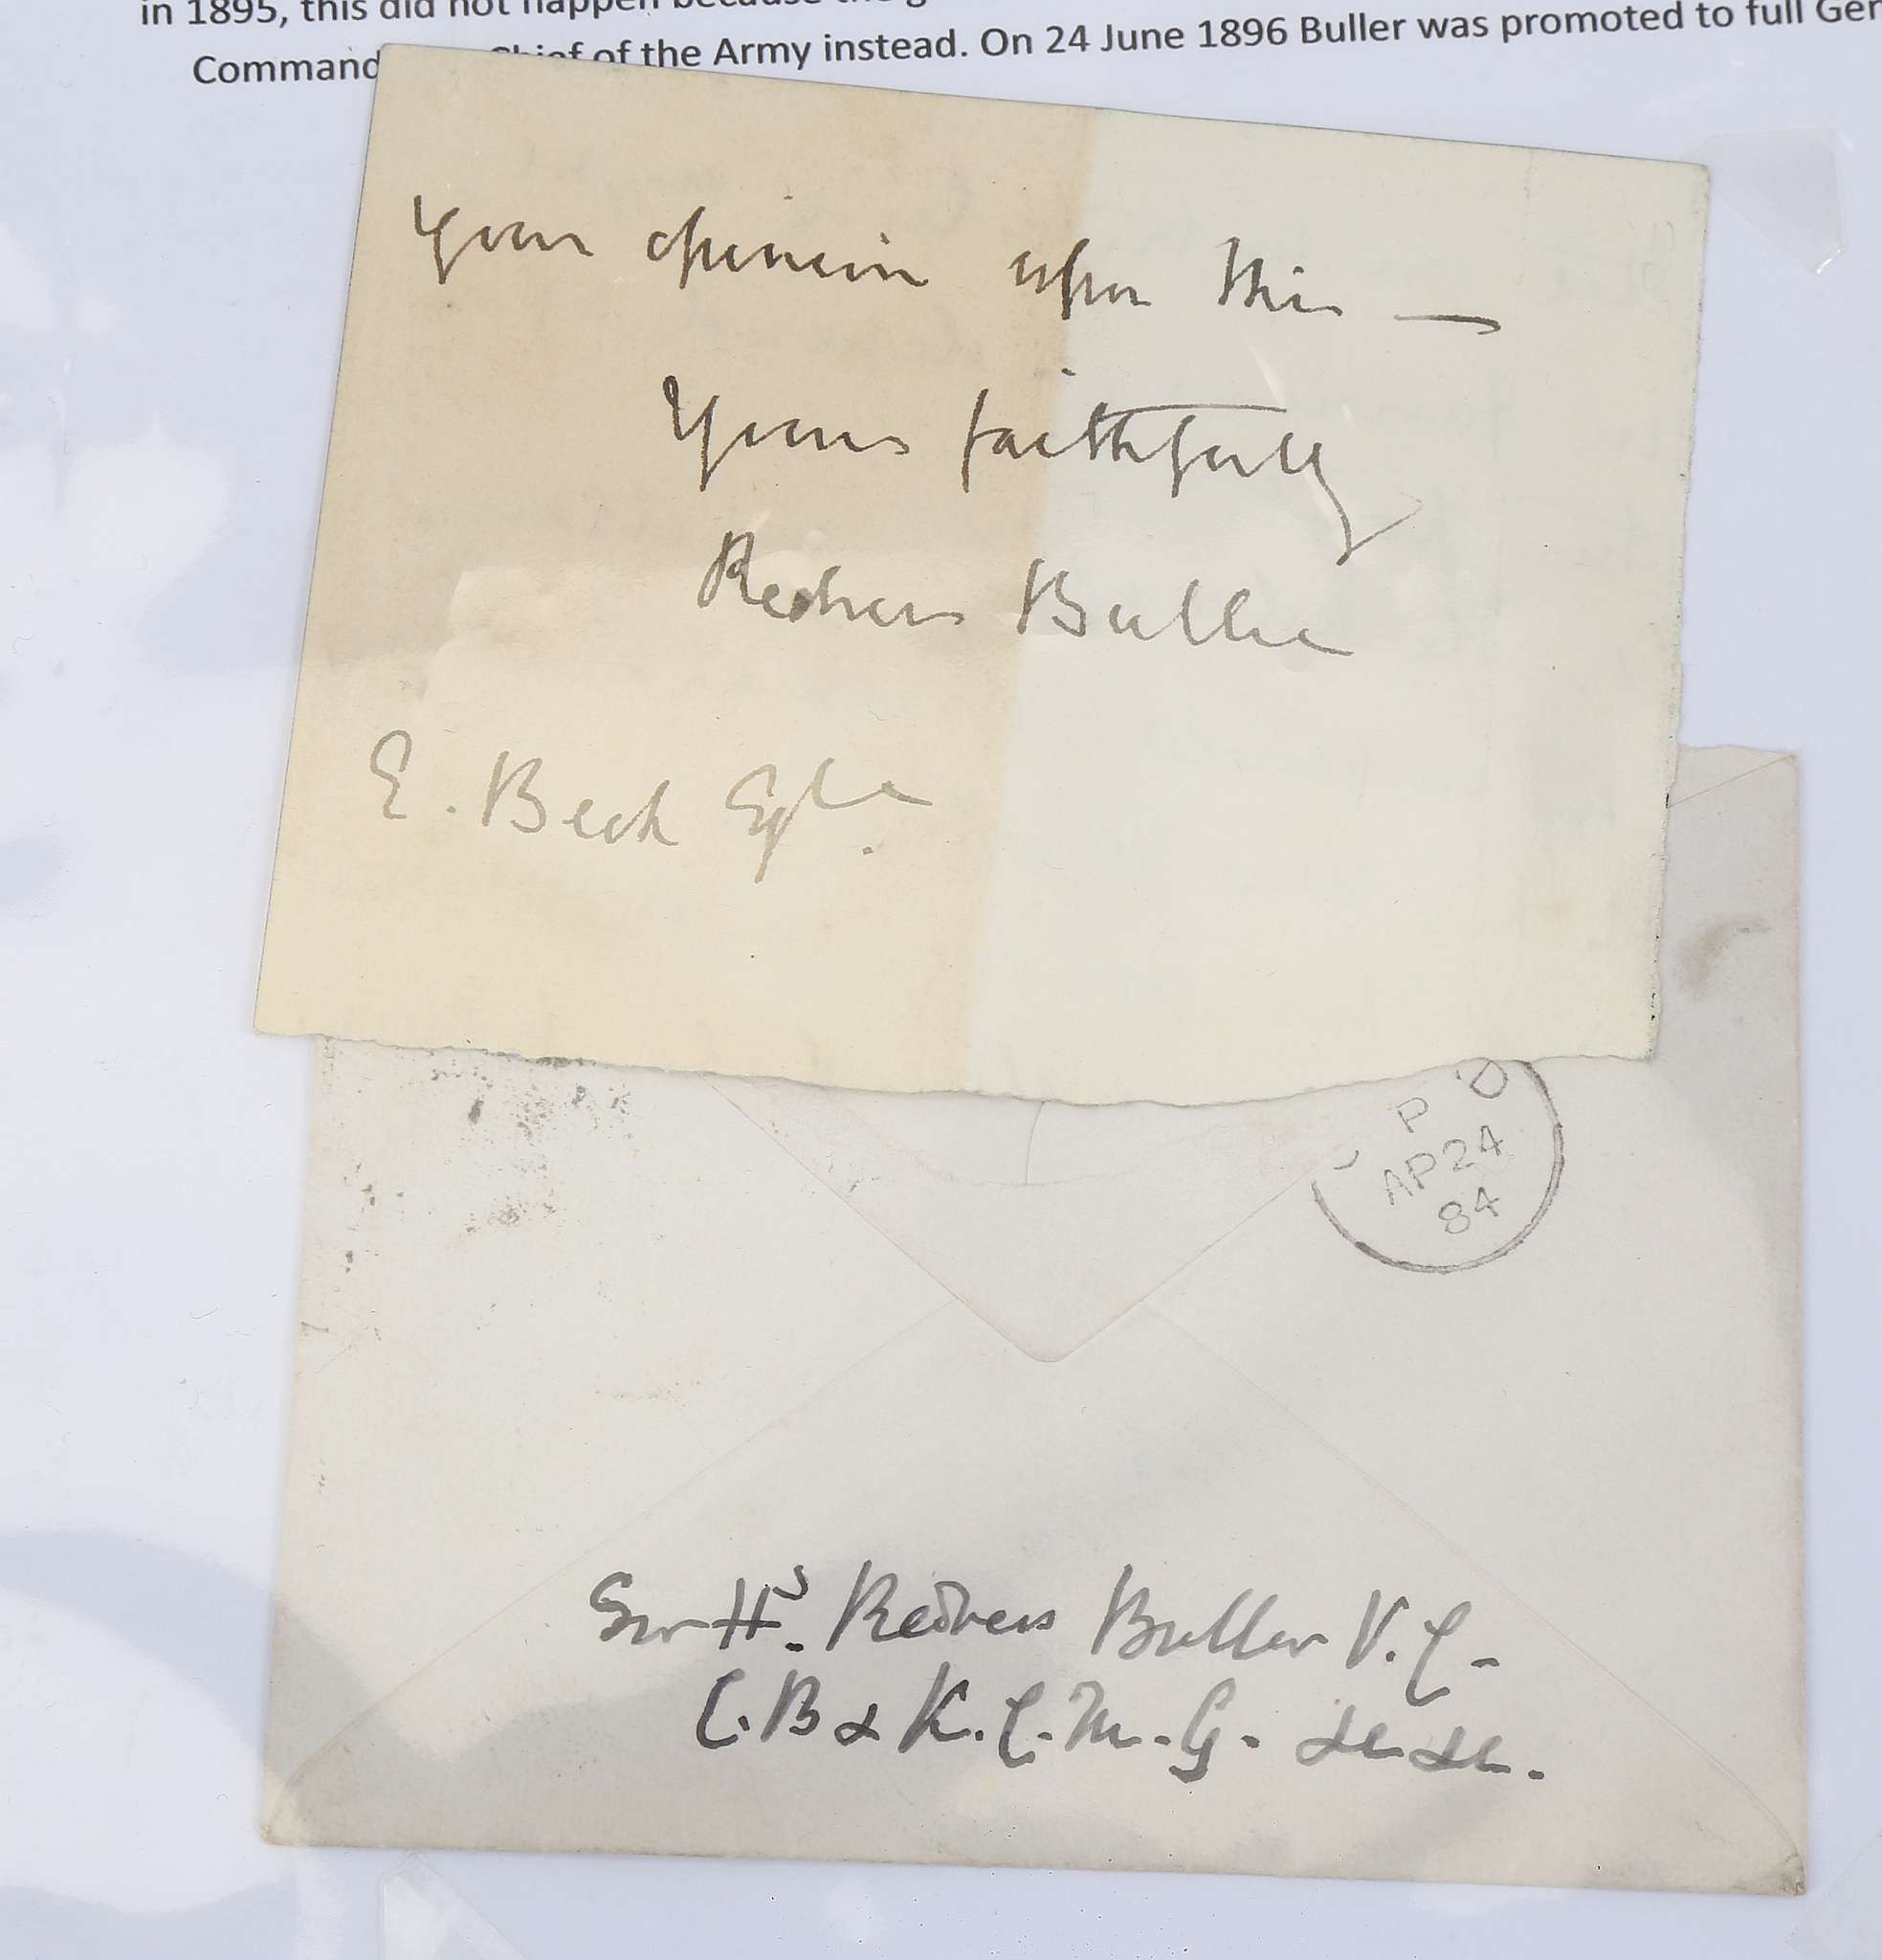 in 1895, this did not happen because the g
Command Chief of the Army instead. On 24 June 1896 Buller was promoted to full Gen
Your opinion upon this —
Yours faithfully
Redvers Buller
E. Beck
P D
AP 24
84
Sir Hs. Redvers Buller V.C.
C.B & K.C.M.G. &c &c.